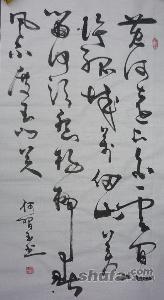 黄河远上白云间
一片孤城万仞山羌
笛何须怨杨柳春
风不度玉门关
shufa.com